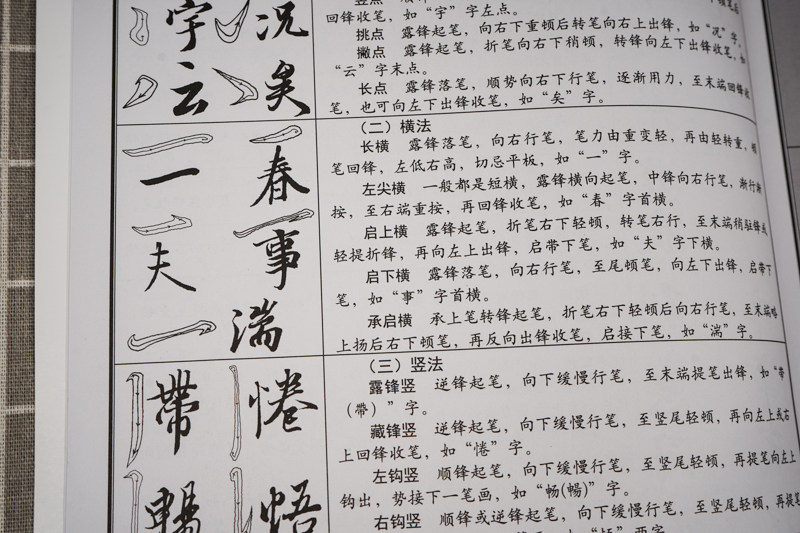 宇
况
云
矣
回锋收笔，如“宇”字左点。
挑点 露锋起笔，向右下重顿后转笔向右上出锋，如“况”字。
撇点 露锋起笔，折笔向右下稍顿，转锋向左下出锋收笔，如
“云”字末点。
长点 露锋落笔，顺势向右下行笔，逐渐用力，至末端回锋收
笔，也可向左下出锋收笔，如“矣”字。
一
春
夫
事
湍
（二）横法
长横 露锋落笔，向右行笔，笔力由重变轻，再由轻转重，
笔回锋，左低右高，切忌平板，如“一”字。
左尖横 一般都是短横，露锋横向起笔，中锋向右行笔，渐行渐
按，至右端重按，再回锋收笔，如“春”字首横。
启上横 露锋起笔，折笔右下轻顿，转笔右行，至末端稍驻锋或
轻提折锋，再向左上出锋，启带下笔，如“夫”字下横。
启下横 露锋落笔，向右行笔，至尾顿笔，向左下出锋，启带下
笔，如“事”字首横。
承启横 承上笔转锋起笔，折笔右下轻顿后向右行笔，至末端略
上扬后右下顿笔，再反向出锋收笔，启接下笔，如“湍”字。
帶
惓
暢
悟
（三）竖法
露锋竖 逆锋起笔，向下缓慢行笔，至末端提笔出锋，如“带
（帶）”字。
藏锋竖 逆锋起笔，向下缓慢行笔，至竖尾轻顿，再向左上或右
上回锋收笔，如“惓”字。
左钩竖 顺锋起笔，向下缓慢行笔，至竖尾轻顿，再提笔向左上
钩出，势接下一笔画，如“畅(暢)”字。
右钩竖 顺锋或逆锋起笔，向下缓慢行笔，至竖尾轻顿，再提笔